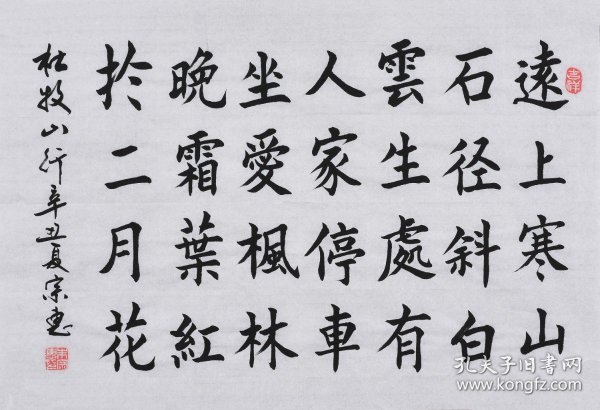 遠上寒山
石径斜白
雲生處有
人家停車
坐愛楓林
晚霜葉紅
扵二月花
杜牧山行辛丑夏宗惠
吉祥
孔夫子旧书网
www.kongfz.com